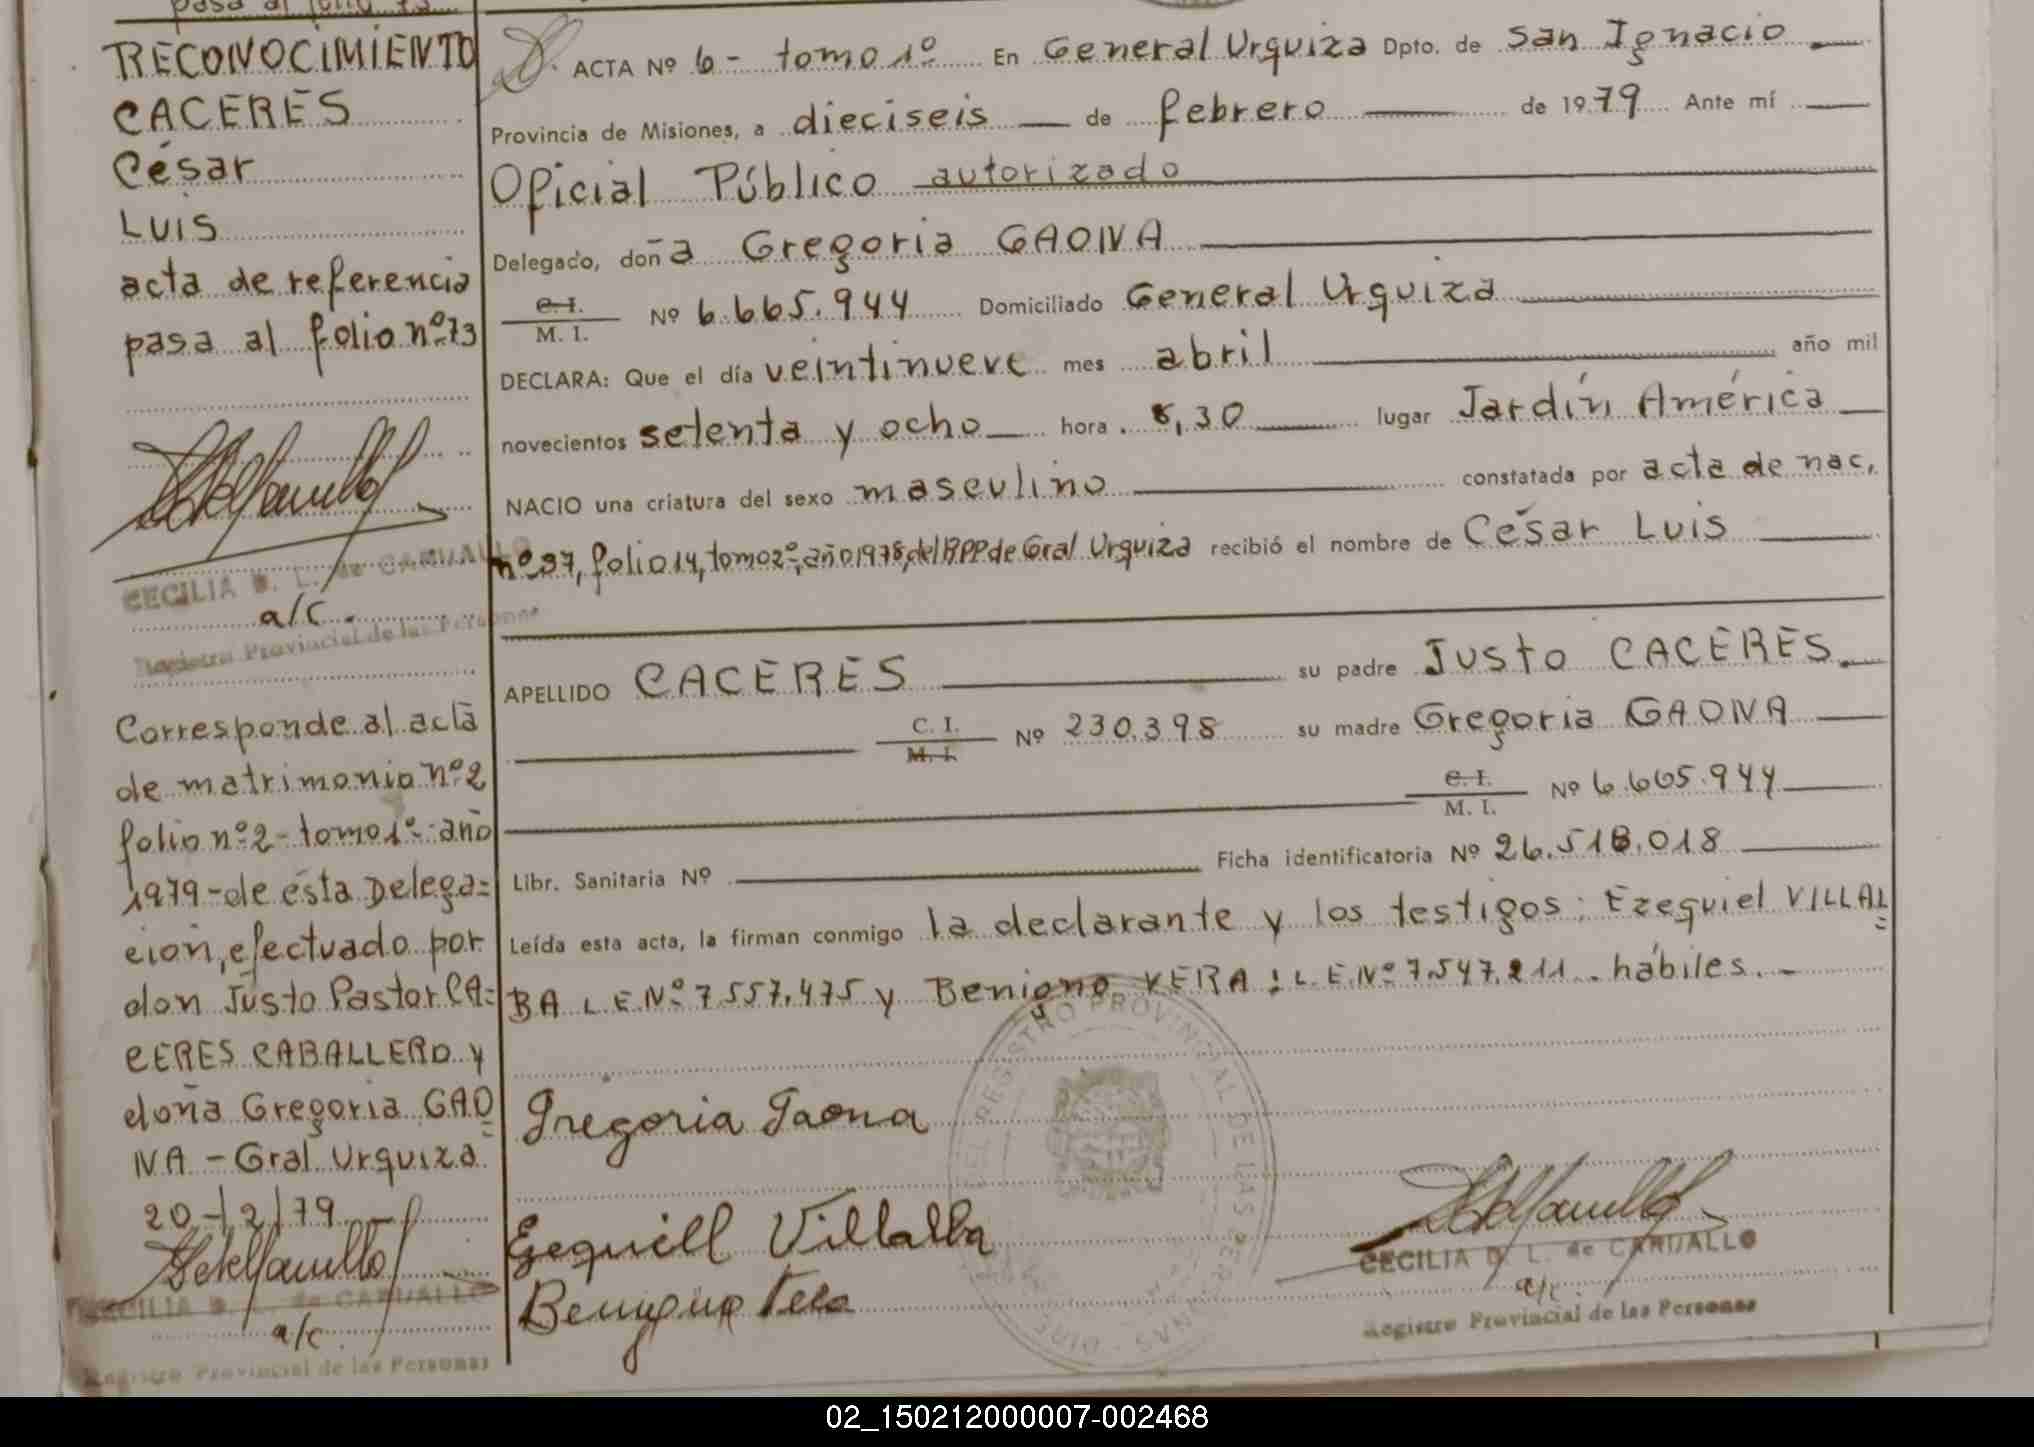 pasa al folio 73
RECONOCIMIENTO
CACERES
César
Luis
acta de referencia
pasa al folio nº 73
CECILIA D. L. de CARVALLO
a/c.
Registro Provincial de las Personas
Corresponde al acta
de matrimonio nº 2
folio nº 2 - tomo 1º - año
1979 - de esta Delega=
ción, efectuado por
don Justo Pastor CA=
CERES CABALLERO y
doña Gregoria GAO=
NA - Gral. Urquiza
20-/2/79
CECILIA D. L. de CARVALLO
a/c.
Registro Provincial de las Personas
ACTA Nº 6 - tomo 1º En General Urquiza Dpto. de San Ignacio
Provincia de Misiones, a dieciseis de febrero de 1979 Ante mí
Oficial Público autorizado
Delegado, doña Gregoria GAONA
C. I.
M. I. Nº 6.665.944 Domiciliado General Urquiza
DECLARA: Que el día veintinueve mes abril año mil
novecientos setenta y ocho hora 8,30 lugar Jardín América
NACIO una criatura del sexo masculino constatada por acta de nac.
nº 37, folio 14, tomo 2º, año 1978, del RPP de Gral Urquiza recibió el nombre de César Luis
APELLIDO CACERES su padre Justo CACERES.
C. I.
M. I. Nº 230.398 su madre Gregoria GAONA
C. I.
M. I. Nº 6.665.944
Libr. Sanitaria Nº Ficha identificatoria Nº 26.518.018
Leída esta acta, la firman conmigo la declarante y los testigos: Ezequiel VILLAL=
BA L.E.Nº 7.557.475 y Benigno VERA: L.E.Nº 7.547.211. hábiles.-
DIRECCION DEL REGISTRO PROVINCIAL DE LAS PERSONAS
Gregoria Gaona
Ezequiell Villalba
CECILIA D. L. de CARVALLO
a/c.
Registro Provincial de las Personas
02_150212000007-002468